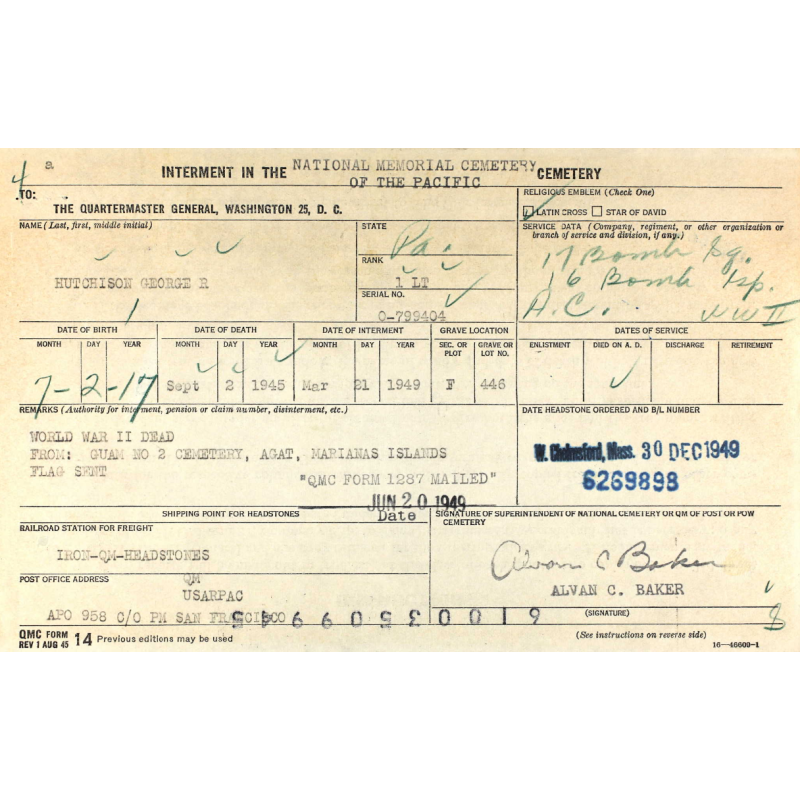 4 a
INTERMENT IN THE NATIONAL MEMORIAL CEMETERY OF THE PACIFIC CEMETERY
TO:
THE QUARTERMASTER GENERAL, WASHINGTON 25, D. C.
RELIGIOUS EMBLEM (Check One)
LATIN CROSS STAR OF DAVID
NAME (Last, first, middle initial)
HUTCHISON GEORGE R
1
STATE
Pa.
RANK
1 LT
SERIAL NO.
O-799404
SERVICE DATA (Company, regiment, or other organization or branch of service and division, if any.)
17 Bomb Sq.
16 Bomb Gp.
A.C. WW II
DATE OF BIRTH DATE OF DEATH DATE OF INTERMENT GRAVE LOCATION DATES OF SERVICE
MONTH DAY YEAR MONTH DAY YEAR MONTH DAY YEAR SEC. OR PLOT GRAVE OR LOT NO. ENLISTMENT DIED ON A. D. DISCHARGE RETIREMENT
7-2-17 Sept 2 1945 Mar 21 1949 F 446
REMARKS (Authority for interment, pension or claim number, disinterment, etc.)
WORLD WAR II DEAD
FROM: GUAM NO 2 CEMETERY, AGAT, MARIANAS ISLANDS
FLAG SENT
"QMC FORM 1287 MAILED"
JUN 20 1949
Date
DATE HEADSTONE ORDERED AND B/L NUMBER
W. Chelmsford, Mass. 30 DEC 1949
6269898
SHIPPING POINT FOR HEADSTONES
RAILROAD STATION FOR FREIGHT
IRON-QM-HEADSTONES
POST OFFICE ADDRESS
QM
USARPAC
APO 958 C/O PM SAN FRANCISCO
SIGNATURE OF SUPERINTENDENT OF NATIONAL CEMETERY OR QM OF POST OR POW CEMETERY
Alvan C Baker
ALVAN C. BAKER
(SIGNATURE)
QMC FORM 14 Previous editions may be used
REV 1 AUG 45
(See instructions on reverse side)
16—46609-1